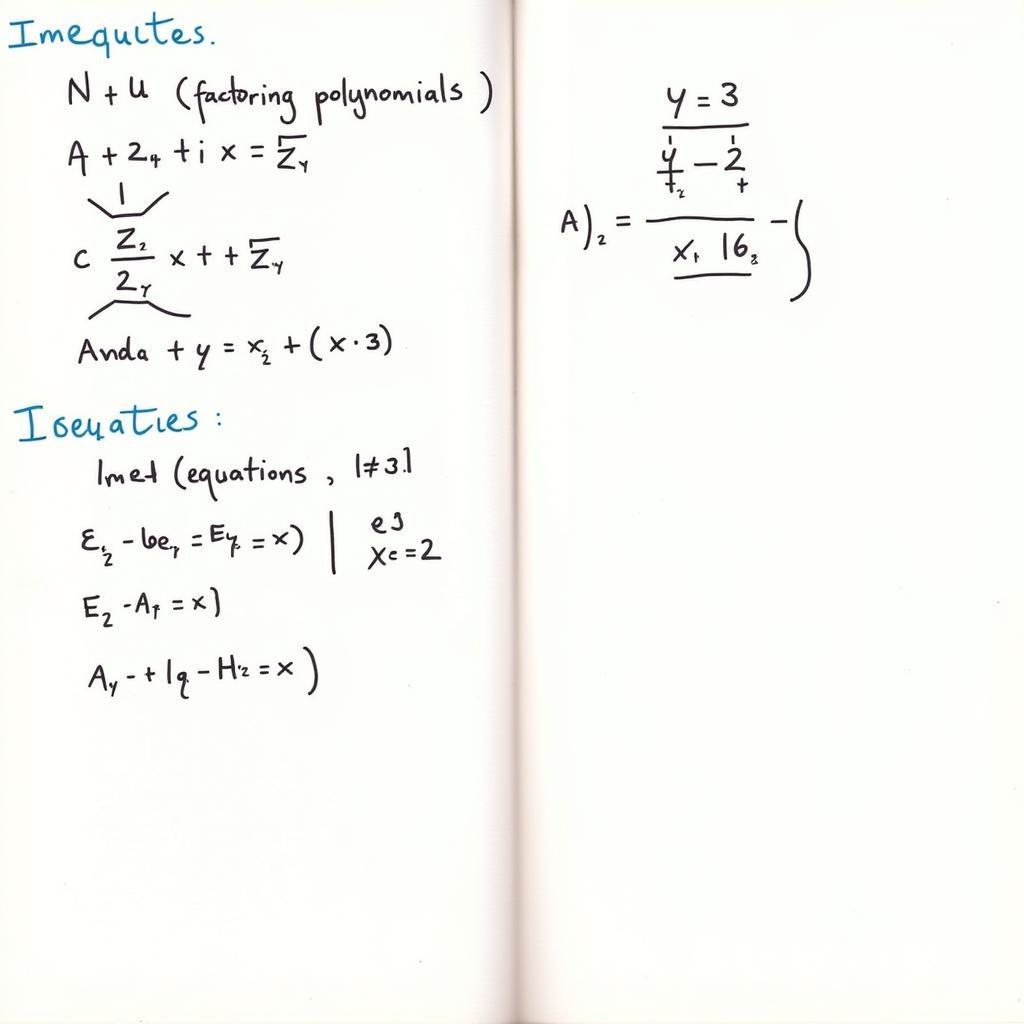 Imequites.
N + u (factoring polynomials )
A + 2₄ + i x = Z̅ᵧ
c Z₂/2ᵧ x + + Z̅ᵧ
Anda + y = x₂ + (x · 3)
Ioeyaties :
Imed (equations , 1≠3.1
E₂ - be, = Eᵧ = x) | e3
xc = 2
E₂ - A = x)
Aᵧ - + lq - H₂ = x )
y = 3
y - 2
A)₂ =
x, 16₂